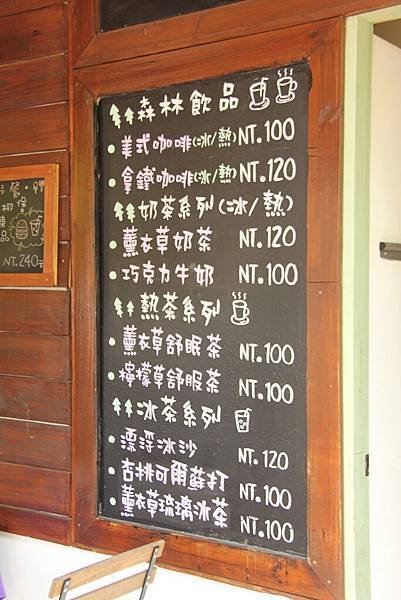 森林飲品
美式咖啡(冰/熱) NT.100
拿鐵咖啡(冰/熱) NT.120
奶茶系列(冰/熱)
薰衣草奶茶 NT.120
巧克力牛奶 NT.100
熱茶系列
薰衣草舒眠茶 NT.100
檸檬草舒服茶 NT.100
冰茶系列
漂浮冰沙 NT.120
杏桃可爾蘇打 NT.100
薰衣草琉璃冰茶 NT.100
NT.240元